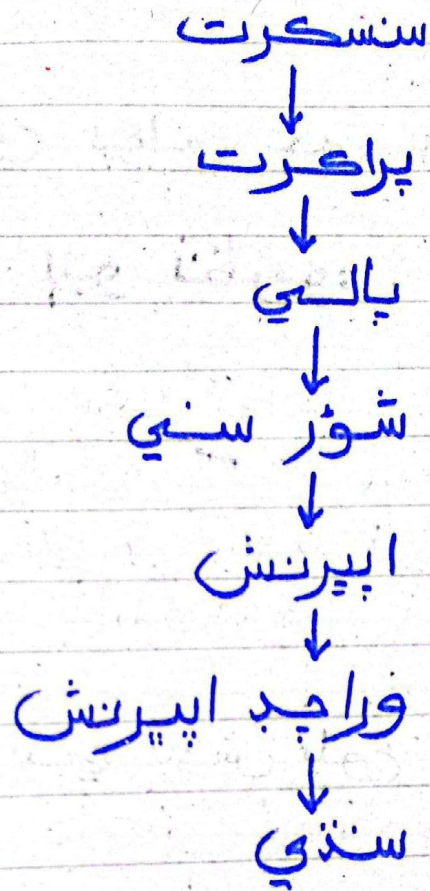 سنسكرت
↓
پراڪرت
↓
پالي
↓
شؤر سني
↓
اپيرنش
↓
وراچڊ اپيرنش
↓
سنڌي